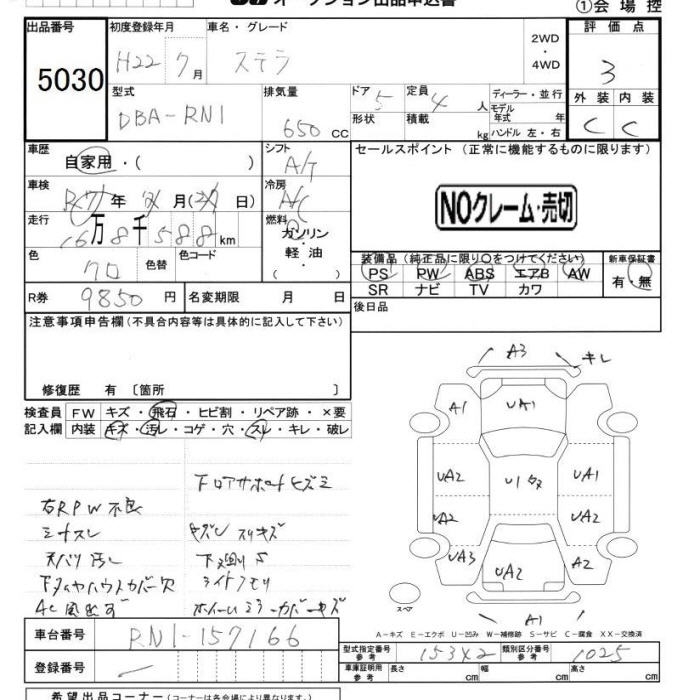 オークション出品申込書
①会場控
出品番号 初度登録年月 車名・グレード 2WD ・ 4WD 評価点
5030 H22 7月 ステラ 3
型式 排気量 ドア 定員 ディーラー・並行
DBA-RN1 650 CC 5 4人 モデル年式 年 外装 内装
形状 積載 kg ハンドル 左・右 C C
車歴 シフト セールスポイント (正常に機能するものに限ります)
自家用・( ) A/T
車検 年 月( 日) 冷房 A/C NOクレーム・売切
走行 燃料
16万8千588km ガソリン・軽油・( )
色 色替 色コード 装備品 (純正品に限り○をつけてください) 新車保証書
クロ PS PW ABS エアB AW 有・無
SR ナビ TV カワ
R券 9850円 名変期限 月 日 後日品
注意事項申告欄 (不具合内容等は具体的に記入して下さい)
修復歴 有 〔箇所 〕
検査員 FW キズ・飛石・ヒビ割・リペア跡・×要
記入欄 内装 キズ・汚レ・コゲ・穴・スレ・キレ・破レ
右RPW不良
シートスレ
天バリ汚レ
下廻りS
ライトクモリ
A3 キレ
A1 UA1
UA2 U1タタ UA1
UA2 UA2
UA3 UA2 A2
A1
スペア
A―キズ E―エクボ U―凹み W―補修跡 S―サビ C―腐食 XX―交換済
車台番号 RN1-157166
登録番号
型式指定番号 参考 15342 類別区分番号 参考 1025
車庫証明用 参考 長さ cm 幅 cm 高さ cm
希望出品コーナー (コーナーは各会場により異なります。)